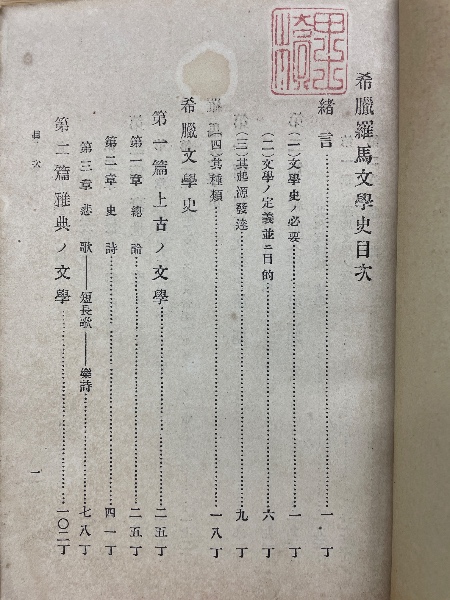 希臘羅馬文學史目次
緒言……一丁
(一)文學史ノ必要……一丁
(二)文學ノ定義並ニ目的……六丁
(三)其起源發達……九丁
(四)其種類……一八丁
希臘文學史
第一篇 上古ノ文學……二五丁
第一章 總論……二五丁
第二章 史詩……四一丁
第三章 悲歌——短長歌——樂詩……七八丁
第二篇 雅典ノ文學……一〇二丁
目次
一